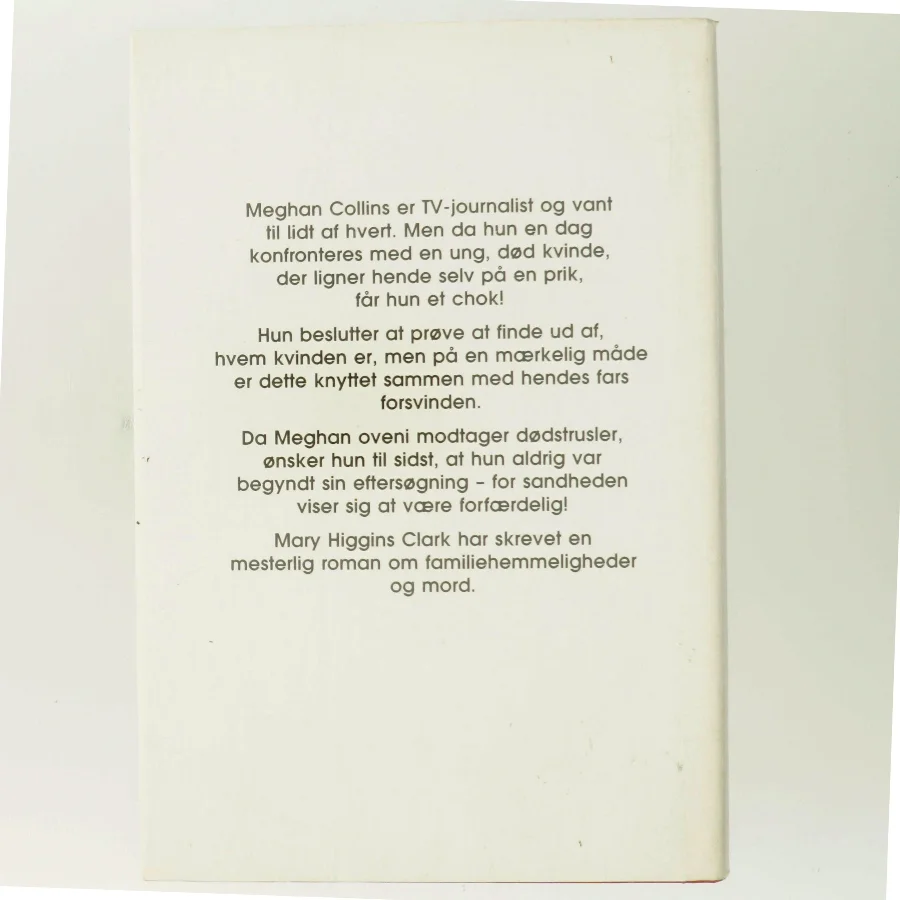 Meghan Collins er TV-journalist og vant
til lidt af hvert. Men da hun en dag
konfronteres med en ung, død kvinde,
der ligner hende selv på en prik,
får hun et chok!
Hun beslutter at prøve at finde ud af,
hvem kvinden er, men på en mærkelig måde
er dette knyttet sammen med hendes fars
forsvinden.
Da Meghan oveni modtager dødstrusler,
ønsker hun til sidst, at hun aldrig var
begyndt sin eftersøgning – for sandheden
viser sig at være forfærdelig!
Mary Higgins Clark har skrevet en
mesterlig roman om familiehemmeligheder
og mord.